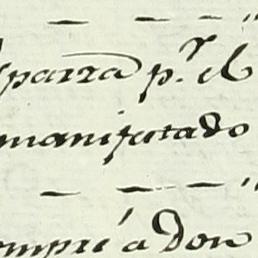 sparza p.r el
manifestado
ompré a Don